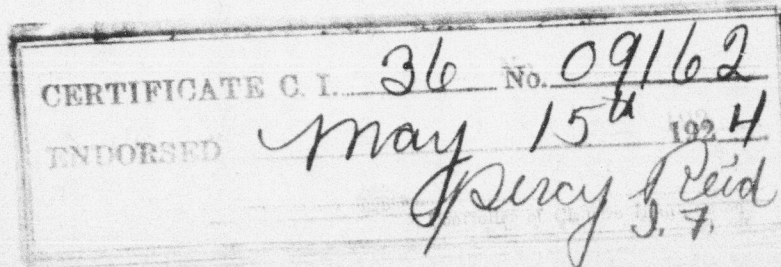 CERTIFICATE C. I. 36 No. 09162
ENDORSED May 15th 1924
Percy Reid
J. F.